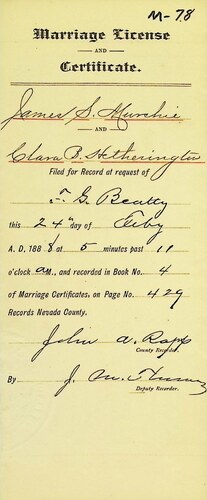 M-78
Marriage License
AND
Certificate.
James S. Murchie
AND
Clara B. Hetherington
Filed for Record at request of
F. G. Beatty
this 24" day of Feby
A. D, 1888 at 5 minutes past 11
o'clock a M., and recorded in Book No. 4
of Marriage Certificates, on Page No. 429
Records Nevada County.
John A. Rapp
County Recorder.
By J. M.
Deputy Recorder.